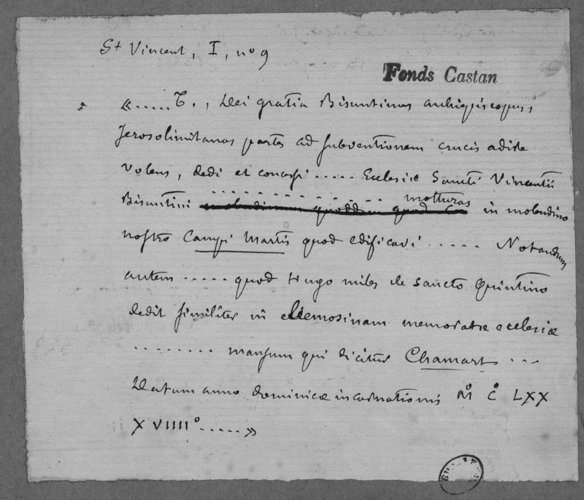 St Vincent, I, no 9
Fonds Castan
« ..... T., Dei gratia Bisuntinus archiepiscopus,
Jerosolimitanas partes ad subventionem crucis adire
volens, dedi et concessi ..... Ecclesie Sancti Vincentii
.................. molturas
Bisuntini molendinum quoddam quod in molendino
nostro Campi Martis quod edificavi ..... Notandum
autem ..... quod Hugo miles de Sancto Quintino
dedit similiter in elemosinam memorate ecclesie
......... mansum qui dicitur Chamars ...
Datum anno dominice incarnationis Mo Co LXX
XVIIIIo ..... »